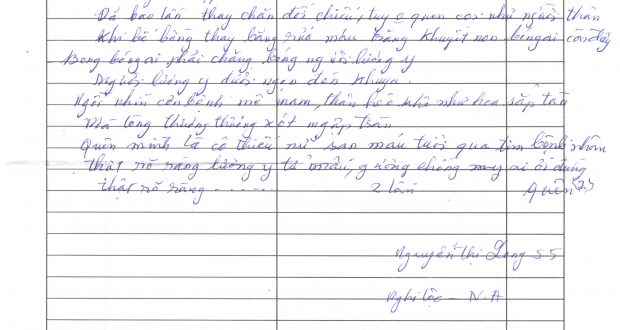 Đã bao lần thay chăn đổi chiếu, tuy quen coi như người thân
Khi bế bồng thay băng rửa máu trăng khuyết non bóng ai còn đây
Bóng bóng ai phải chăng bóng người lương y
Người lương y dưới ngọn đèn khuya.
Ngồi nhìn con bệnh mê mam, thân héo khô như hoa sắp tàn
Mà lòng thương thương xót ngập tràn
Quên mình là cô thiếu nữ sao máu tươi qua tim bệnh nhân
thật rõ ràng lương y từ mẫu, gương chồng my ai ơi đừng
thật rõ ràng ...... 2 lần Quên (2)
Nguyễn Thị Long 55
Nghi Lộc - N.A